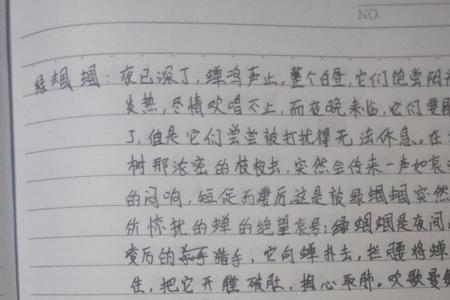 NO.
绿蝈蝈：夜已深了，蝉鸣声止，整个白昼，它们饱尝阳
炎热，尽情吹唱不止，而夜晚来临，它们要
了，但是它们尝尝被打扰得无法休息、在
树那浓密的枝桠，突然会传来一声如哀
的闷响，短促而 这是被绿蝈蝈突然
所惊扰的蝉的绝望哀号：绿蝈蝈是夜间
的 猎手，它向蝉扑去，拦腰将蝉
住，把它开膛破肚，掏心取肺。吹歌曼